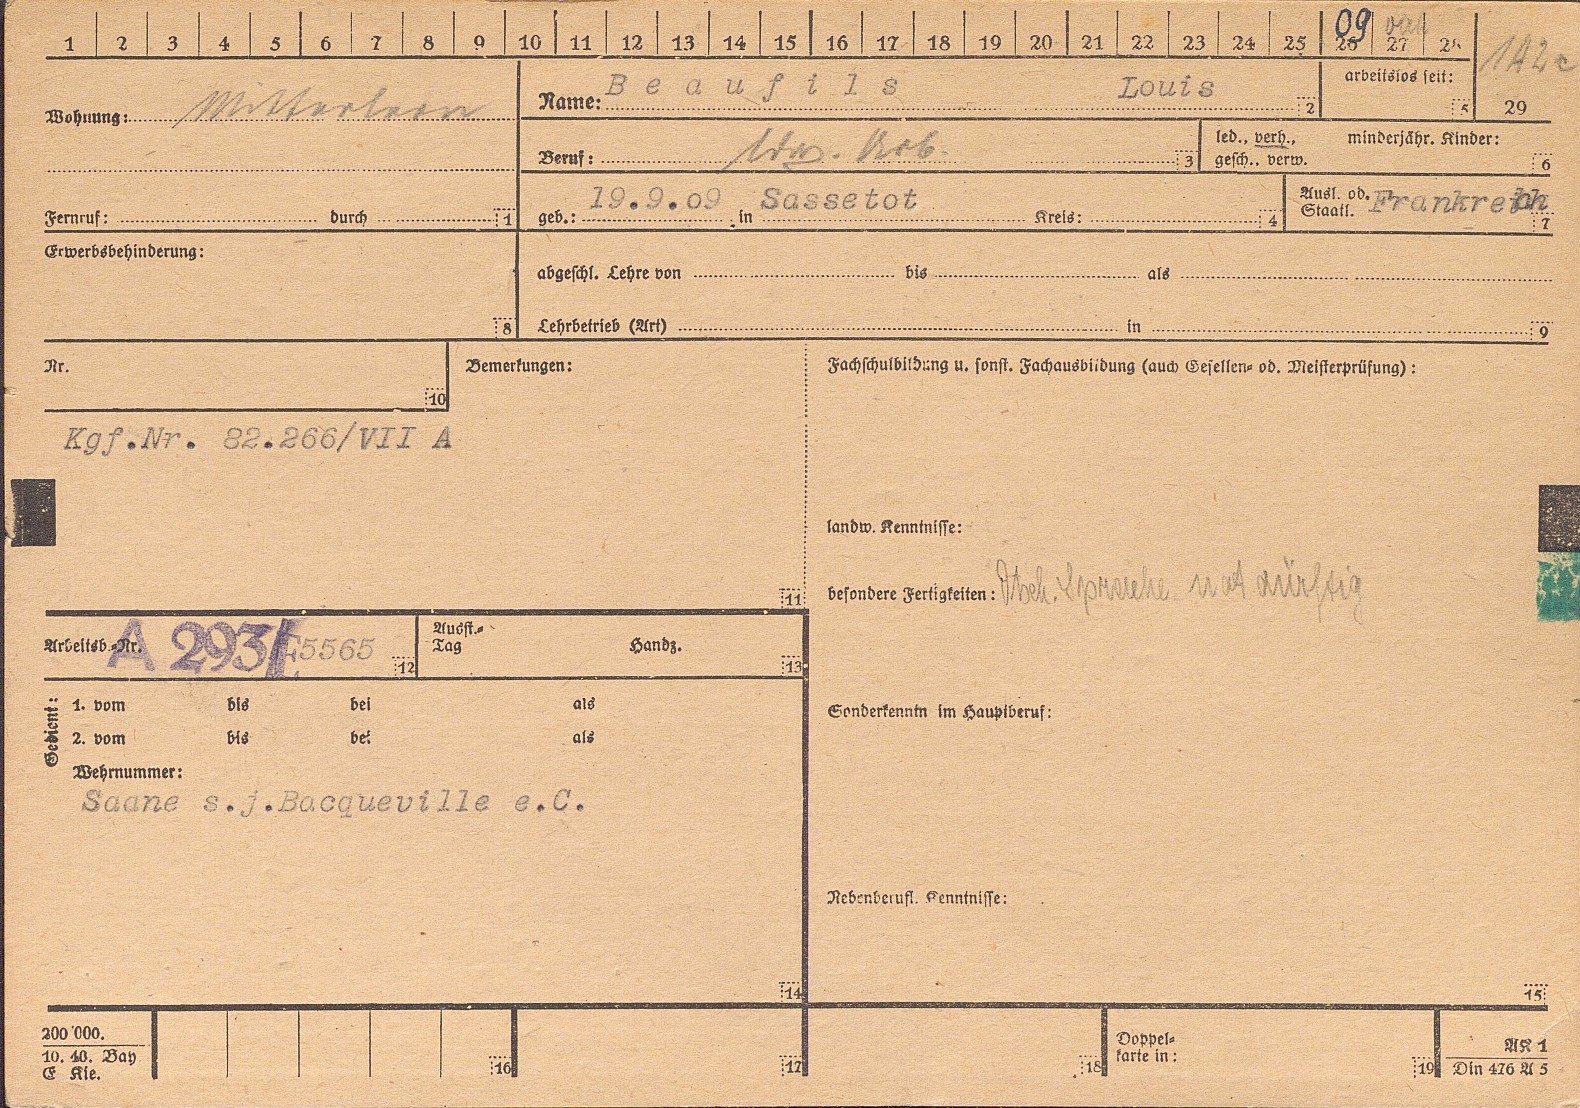 1 2 3 4 5 6 7 8 9 10 11 12 13 14 15 16 17 18 19 20 21 22 23 24 25 26 27 28
09
142c
Wohnung:
Name: Beaufils Louis 2
arbeitslos seit: 5
29
Beruf: ldw. Arb. 3
led., verh., gesch., verw.
minderjähr. Kinder: 6
Fernruf: durch 1
geb.: 19.9.09 in Sassetot Kreis: 4
Ausl. od. Staatl. Frankreich 7
Erwerbsbehinderung: 8
abgeschl. Lehre von bis als
Lehrbetrieb (Art) in 9
Nr. 10
Bemerkungen:
Kgf.Nr. 82.266/VII A
11
Fachschulbildung u. sonst. Fachausbildung (auch Gesellen- od. Meisterprüfung):
landw. Kenntnisse:
besondere Fertigkeiten: Dtsch. Sprache notdürftig
Arbeitsb.-Nr. A 293/E5565 12
Ausst.-Tag Handz. 13
Gedient:
1. vom bis bei als
2. vom bis bei als
Wehrnummer:
Saane s.j.Bacqueville e.C.
14
Sonderkenntn im Hauptberuf:
Nebenberufl. Kenntnisse:
15
200 000.
10. 40. Bay
E Kie.
16
17
18
Doppel-
karte in:
19
AK 1
Din 476 A 5